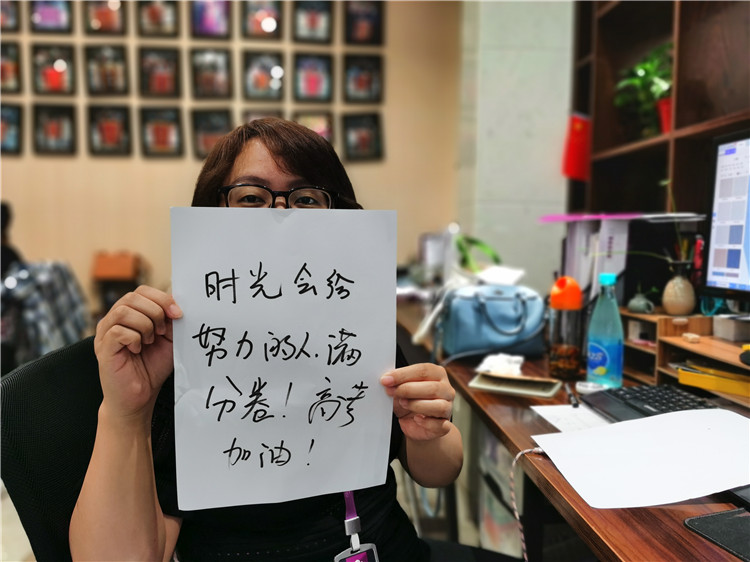 时光会给
努力的人.满
分卷！高考
加油！